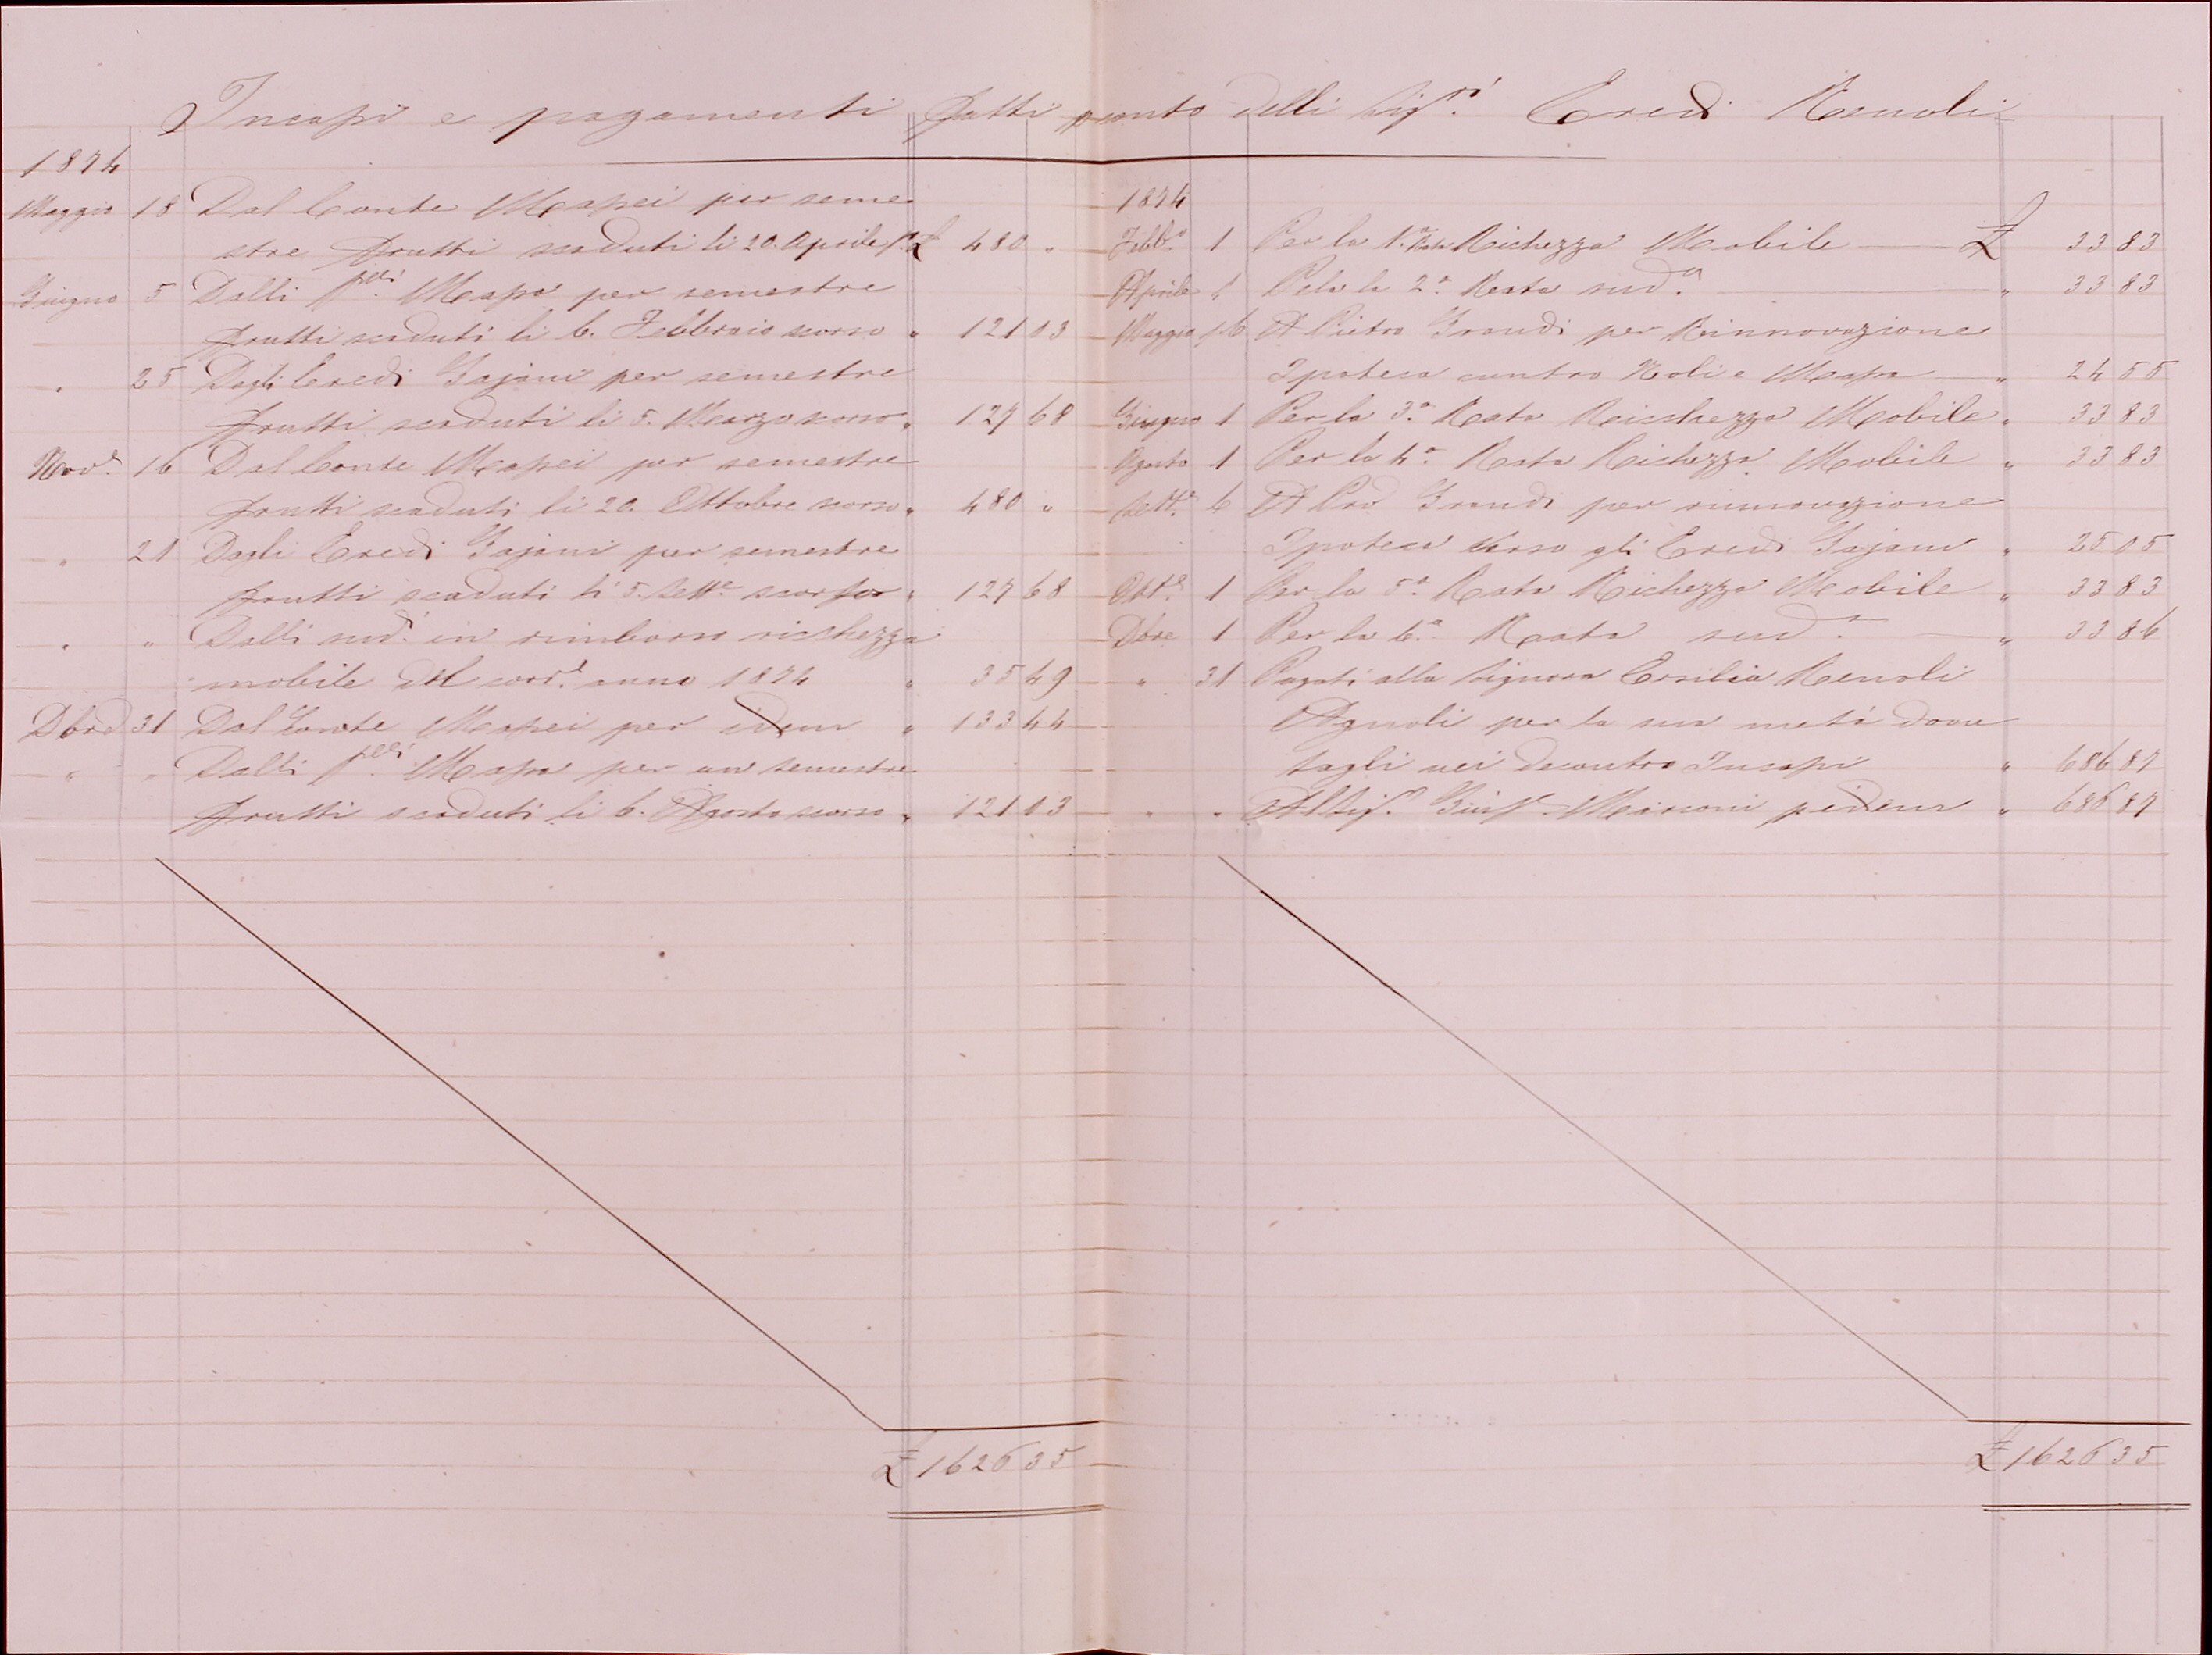 Incassi e pagamenti fatti p conto delli Sigri Eredi Renoli
1874
Maggio 18 Dal Conte Massei per seme
stre frutti scaduti li 20. Aprile p.º £ 480 "
Giugno 5 Dalli flli Massa per semestre
frutti scaduti li 6. Febbraio scorso " 121 03
" 25 Dagli Eredi Gajani per semestre
frutti scaduti li 5. Marzo scorso " 127 68
Nove 16 Dal Conte Massei per semestre
frutti scaduti li 20. Ottobre scorso " 480 "
" 21 Dagli Eredi Gajani per semestre
frutti scaduti li 5. Sette scorso " 127 68
" " Dalli sudi in rimborso ricchezza
mobile del corre anno 1874 " 35 49
Dbre 31 Dal Conte Massei per idem " 133 44
" " Dalli flli Massa per un semestre
frutti scaduti li 6. Agosto scorso " 121 03
£ 1626 35
1874
Febbo 1 Per la 1.a Rata Richezza Mobile £ 33 83
Aprile 1 Pela la 2a Rata suda " 33 83
Maggio 16 A Pietro Grandi per Rinnovazione
Ipoteca contro Noli e Massa " 24 55
Giugno 1 Per la 3.a Rata Ricchezza Mobile " 33 83
Agosto 1 Per la 4a Rata Richezza Mobile " 33 83
Sette 6 A Pro Grandi per rinnovazione
Ipoteca verso gli Eredi Gajani " 25 05
Otte 1 Per la 5a Rata Richezza Mobile " 33 83
Dbre 1 Per la 6.a Rata suda " 33 86
" 31 Pagati alla Signora Ersilia Renoli
Agnoli per la sua metà dovu
tagli nei decontro Incassi " 686 87
" " Al Sigr Giuse Marconi p idem " 686 87
£ 1626 35